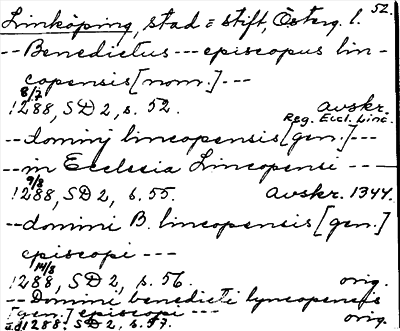 52.
Linköping, stad = stift, Österg. l.
-- Benedictus --- episcopus lin-
copensis [nom.] ---
8/7
1288, SD 2, s. 52. avskr.
Reg. Eccl. Linc.
-- dominj lincopensis [gen.] ---
-- in Ecclesia Lincopensi ---
9/8
1288, SD 2, s. 55. Avskr. 1344.
-- domini B. lincopensis [gen.]
episcopi ---
14/8
1288, SD 2, s. 56. orig.
-- Domini benedicti lyncopensis
[gen.] episcopi ---
1288. SD 2, s. 57. orig.